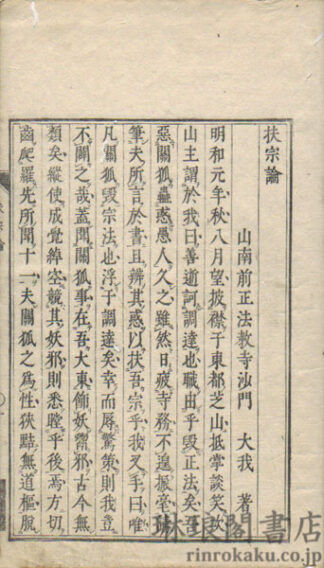 扶宗論
山南前正法教寺沙門　大我　著
明和元年秋八月望披襟于東都芝山抵掌談笑次
山主謂於我曰善道訶調達也職由乎毀正法矣吾
惡關狐蠱惑愚人久之雖然日疲寺務不遑振毫
筆夫所言於書且辨其惑以扶吾宗乎我叉手曰唯
凡關狐毀宗法也浮于調達矣幸而辱驚策則我豈
不關之哉蓋聞關狐事在吾大東飾妖鬻邪古今無
類矣縱使成覺緯空競其妖邪則悉瞠乎後焉方切
齒爬羅先所聞十一夫關狐之爲性狹黠無道樞脫
琳琅閣書店
rinrokaku.co.jp